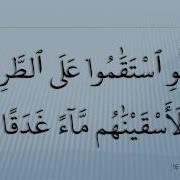 وِ ٱسْتَقَٰمُوا۟ عَلَى ٱلطَّرِ
لَأَسْقَيْنَٰهُم مَّآءً غَدَقًا